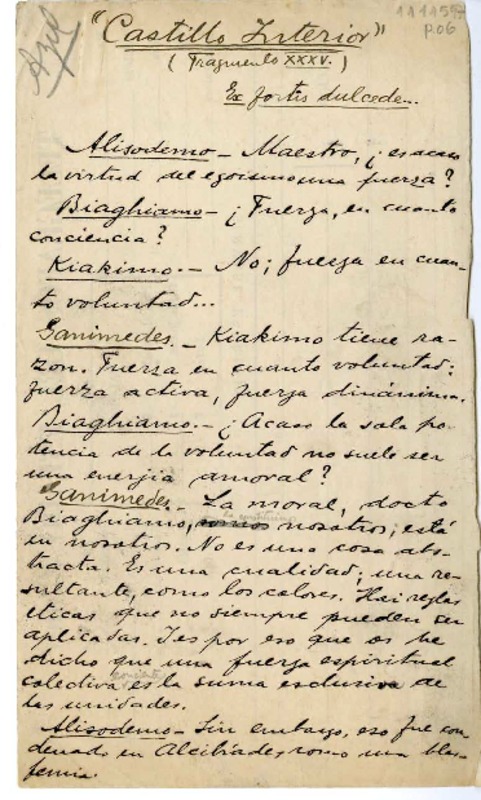 Azul
"Castillo Interior"
(Fragmento XXXV.)
P.06
Ex fortis dulcede...
Alisodemo - Maestro, ¿es acaso
la virtud del egoismo una fuerza?
Biaghiamo - ¿Fuerza, en cuanto
conciencia?
Kiakimo. - No; fuerza en cuan-
to voluntad...
Ganimedes. - Kiakimo tiene ra-
zon. Fuerza en cuanto voluntad:
fuerza activa, fuerza dinámica.
Biaghiamo. - ¿Acaso la sola po-
tencia de la voluntad no suele ser
una energia amoral?
Ganimedes. - La moral, docto
Biaghiamo, somos nosotros; está
en nosotros. No es una cosa abs-
tracta. Es una cualidad; una re-
sultante, como los colores. Hai reglas
eticas que no siempre pueden ser
aplicadas. I es por eso que os he
dicho que una fuerza espiritual
colectiva es la suma esclusiva de
las unidades.
Alisodemo - Sin embargo, eso fue con-
denado en Alcibíades como una blas-
femia.